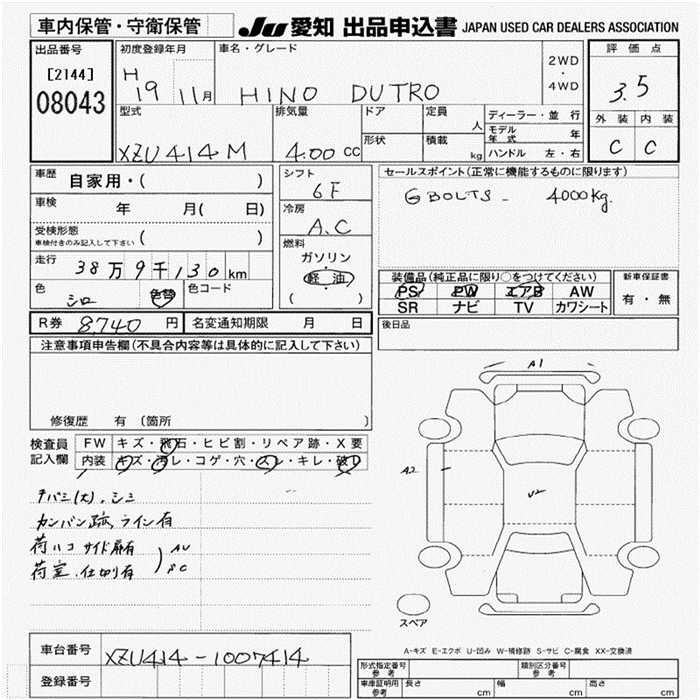 車内保管・守衛保管
JU 愛知 出品申込書 JAPAN USED CAR DEALERS ASSOCIATION
出品番号
[2144]
08043
初度登録年月
H 19 11月
車名・グレード
HINO DUTRO
2WD
・
4WD
評価点
3.5
外装 内装
C C
型式
XZU414M
排気量
4.00 CC
ドア
形状
定員
人
積載
kg
ディーラー・並行
モデル年式 年
ハンドル 左・右
車歴 自家用・( )
車検 年 月( 日)
受検形態
車検付きのみ記入して下さい ( )
走行 38万9千130km
色 シロ 色替
色コード
シフト
6F
冷房
A.C
燃料
ガソリン
・
軽油
( )
セールスポイント(正常に機能するものに限ります)
6BOLTS - 4000kg.
装備品(純正品に限り○をつけてください)
PS PW エアB AW
SR ナビ TV カワシート
新車保証書
有・無
後日品
R券 8,740 円
名変通知期限 月 日
注意事項申告欄(不具合内容等は具体的に記入して下さい)
修復歴 有 〔箇所 〕
検査員記入欄
FW キズ・飛石・ヒビ割・リペア跡・X要
内装 キズ・汚レ・コゲ・穴・スレ・キレ・破レ
カンバン跡、ライン有
荷ハコ サイド扉有
荷室、仕切有
A1
A2
U2
スペア
A-キズ E-エクボ U-凹み W-補修跡 S-サビ C-腐食 XX-交換済
車台番号 XZU414-1007414
登録番号
形式指定番号
参考
類別区分番号
参考
車庫証明用
参考
長さ cm 幅 cm 高さ cm